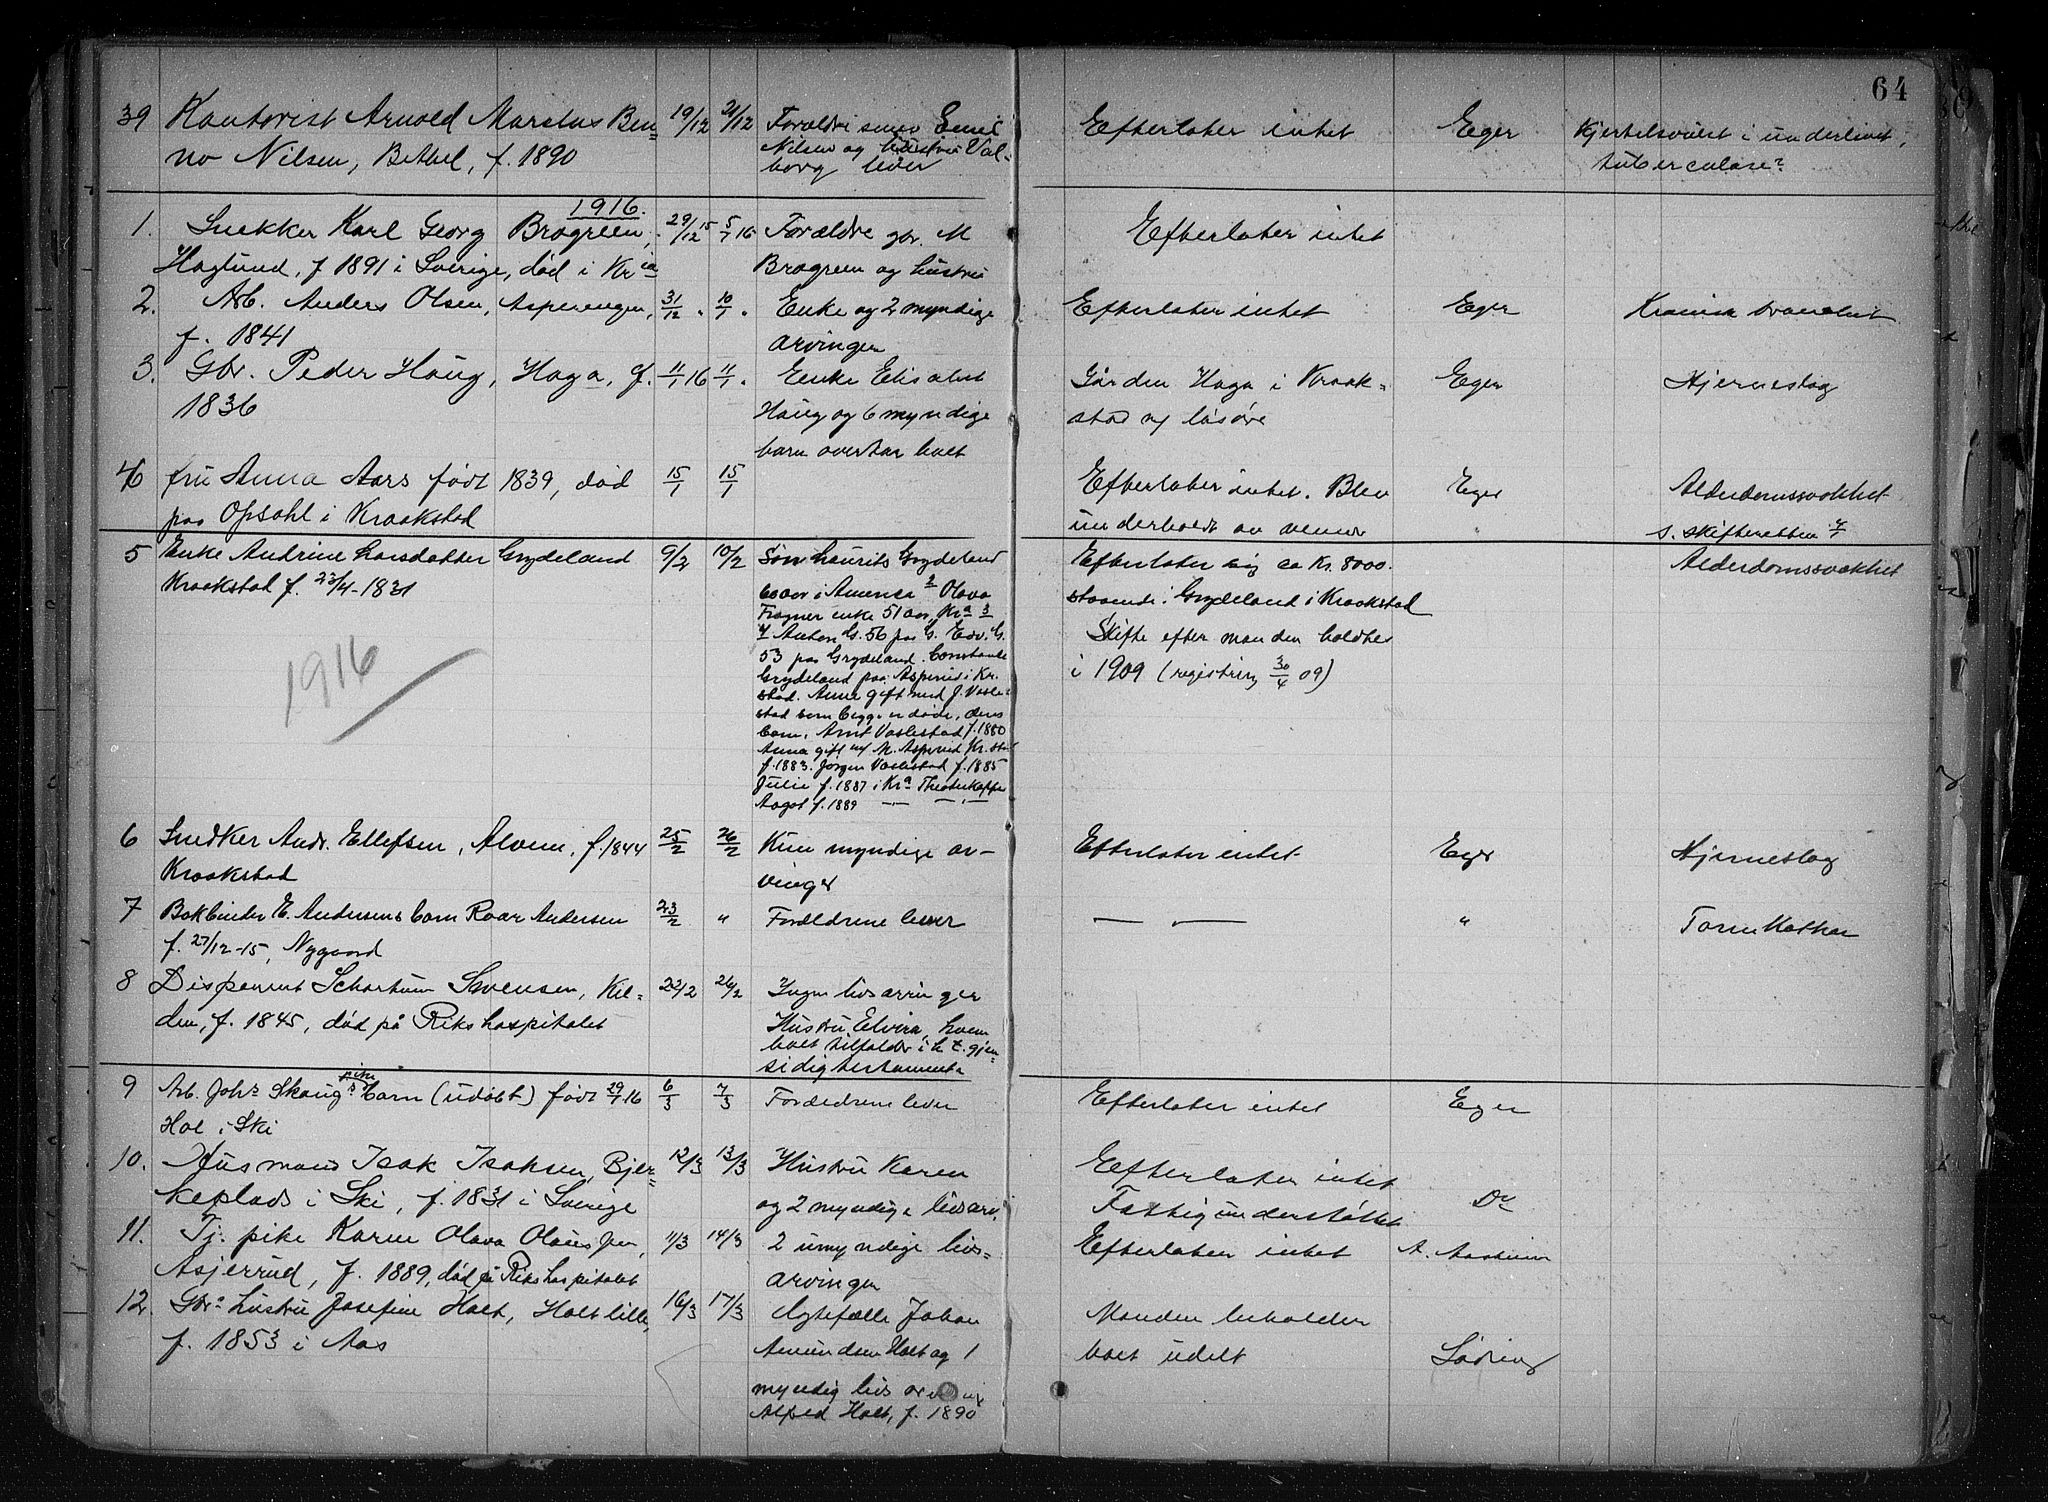 64
39 Kontorist Arnold Marelus Ben- 19/12 21/12 Forældre smev Emil Efterlater intet Eger Kjertelsvulst i underlivet,
no Nilsen, Bethel, f. 1890 Nilsen og hustru Val- tuberculose?
borg lever
1916.
1. Snekker Karl Georg Brogreen, 29/12 15 5/1 16 Forældre gbr. M Efterlater intet
Haglund, f 1891 i Sverige, død i Kria Brogreen og hustru
2. Arb. Anders Olsen, Aspurengen, 31/12 " 10/1 " Enke og 2 myndige Efterlater intet Eger Kronisk
f. 1841 arvinger
3. Gbr. Peder Haug, Haga, f. 11/1 16 11/1 " Enke Elisabet Gården Haga i Kraak- Eger Hjerneslag
1836 Haug og 6 myndige stad og løsøre
barn overtar boet
4 fru Anna Aars født 1839, død 15/1 15/1 Efterlater intet. Blev Eger Alderdomssvakhet
paa Opsahl i Kraakstad underholdt av venner " s. skifteretten 4/1
5 Enke Andrine Larsdatter Grydeland 9/2 10/2 Søn Laurits Grydeland Efterlater sig ca Kr. 8000. Alderdomssvakhet
Kraakstad f. 23/4-1831 60 aar i Amerika 2 Olava staaende i Grydeland i Kraakstad
Fragner enke 51 aar, Kra 3 Skifte efter manden holdtes
4 Anton G. 56 paa G. Edv. G. i 1909 (registrering 30/4 09)
53 paa Grydeland. Constanse
1916
Grydeland paa Asperud i Kr.
stad. Anna gift med J. Vaale-
stad som begge er døde, deres
barn. Arnt Vaalestad f. 1880
Anna gift m/ M. Asperud Kr. stad
f. 1883. Jørgen Vaalestad f. 1885
Julie f. 1887 i Kra Theaterkaffe
Aagot f. 1889 — " — — " —
6 Snedker Andr. Ellefsen, Alvern, f. 1844 25/2 26/2 Kun myndige ar- Efterlater intet Eger Hjerneslag
Kraakstad vinger
7 Bokbinder E. Andersens barn Roar Andersen 23/2 " Forældrene lever — — " Tarmkathar
f. 27/12-15, Nygaard
8 Disponent Schartum Svensen, Kil- 22/2 26/2 Ingen livsarvinger
den, f. 1845, død på Rikshospitalet Hustru Elvira, hvem
boet tilfalder i h. t. gjen-
sidig testamente
9 Arb. Johs Skaugs pike barn (udøbt) født 29/1 16 6/3 7/3 Forældrene lever Efterlater intet Eger
Hol i Ski
10. Husmand Isak Isaksen, Bjer- 12/3 13/3 Hustru Karen Efterlater intet
keplads i Ski, f. 1831 i Sverige og 2 myndige livsarv. Fattigunderstøttet Do
11. Tj. pike Karen Olava Olausen, 11/3 14/3 2 umyndige livs- Efterlater intet A. Aasheim
Asjerrud, f. 1889, død på Rikshospitalet arvinger
12. Gbrs hustru Josefine Holt, Holt lille, 16/3 17/3 Egtefælle Johan Manden beholder
f. 1853 i Aas Amundsen Holt og 1 boet udelt Lødring
myndig livsarving
Alfred Holt, f. 1890